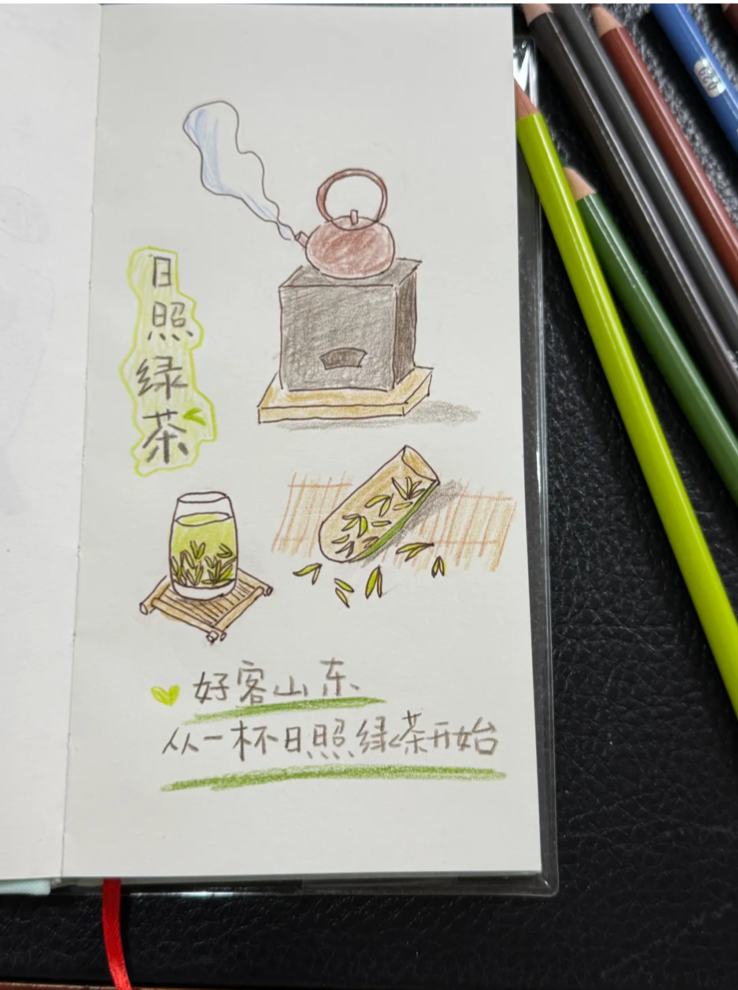 日照绿茶
好客山东
从一杯日照绿茶开始
029